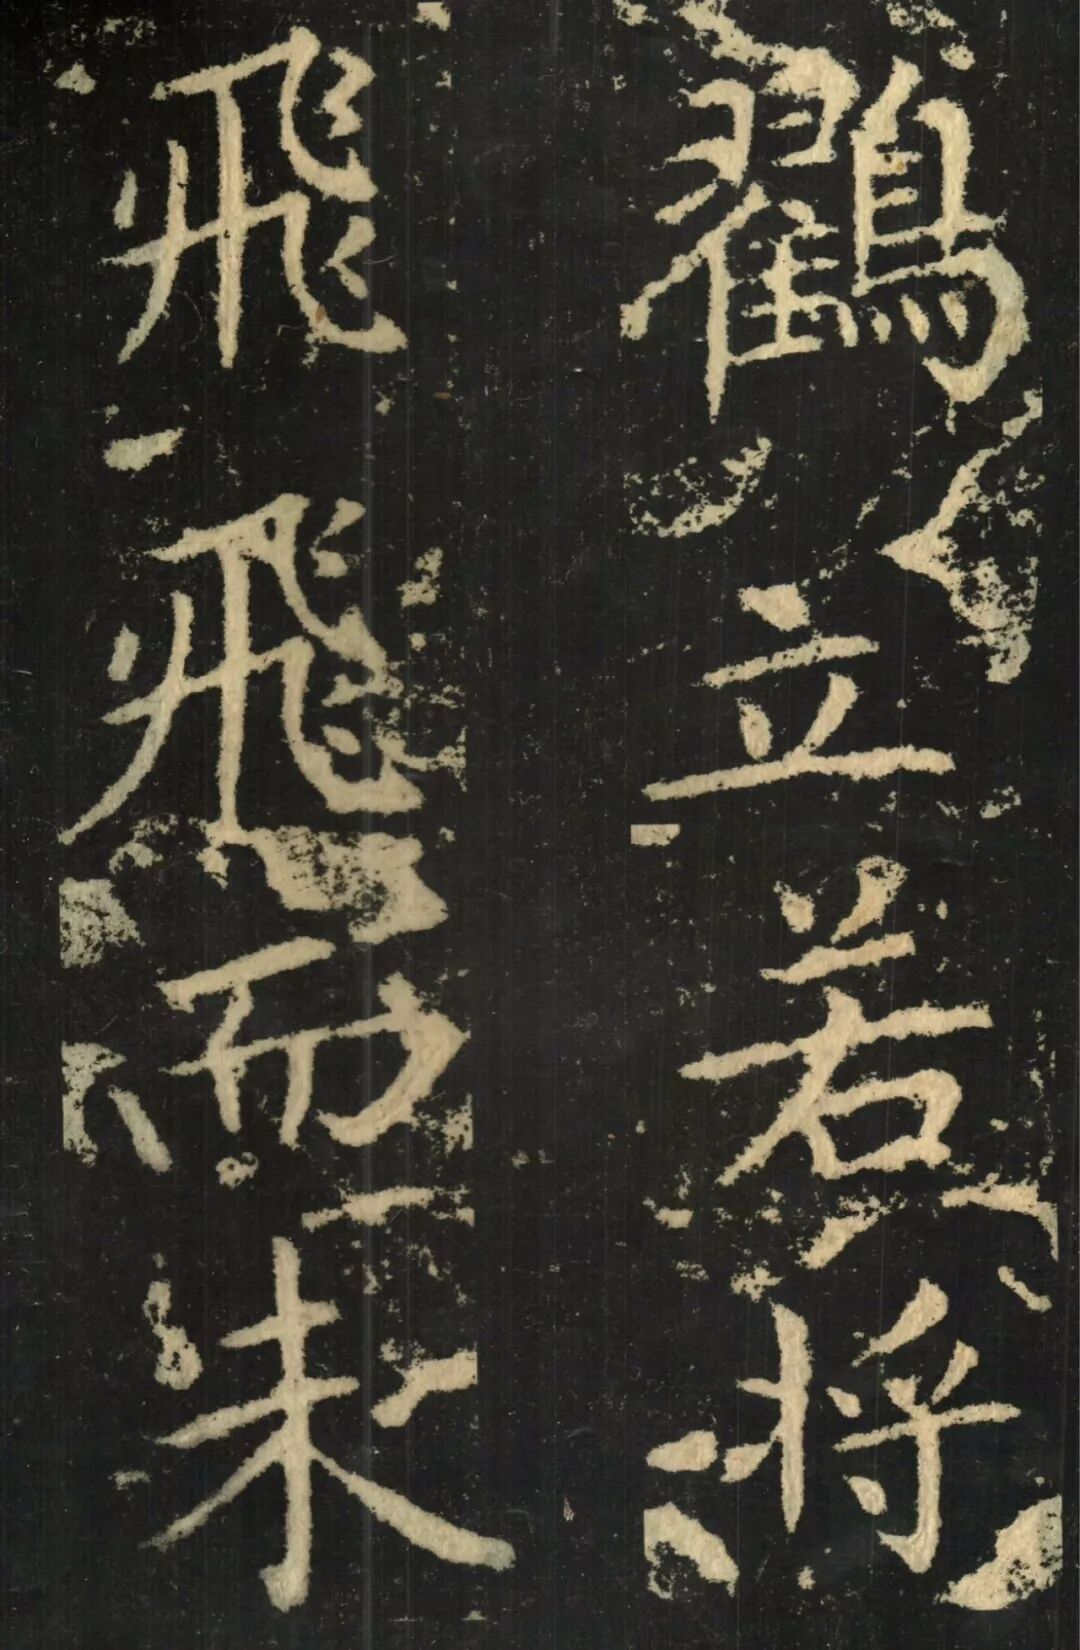 鶴立若將
飛飛而未